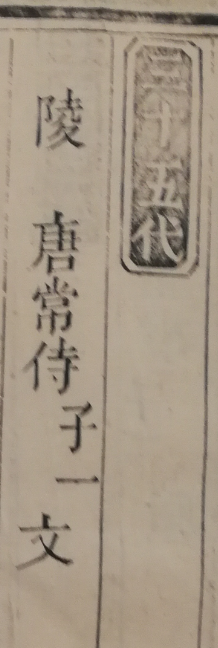 三十五代
陵　唐常侍子一文